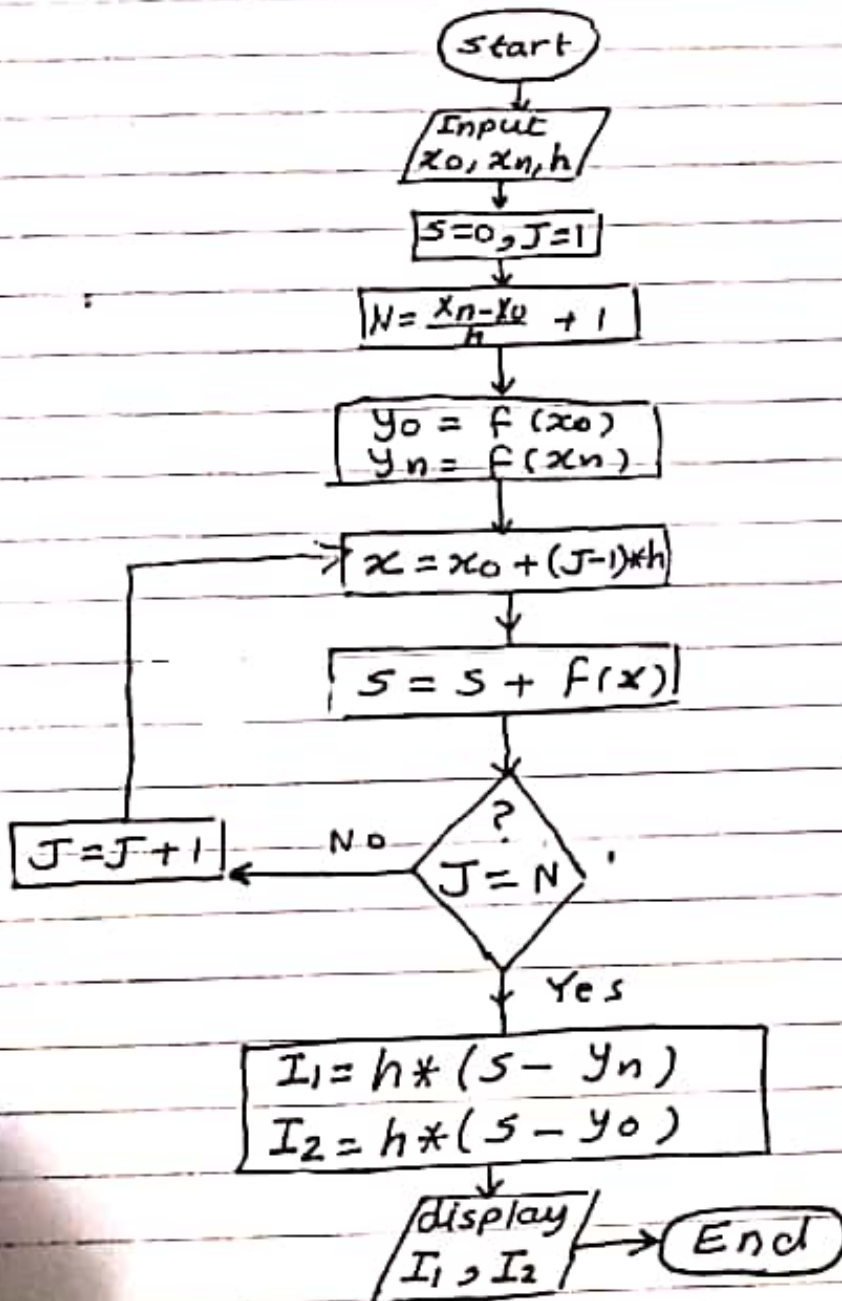 start
Input
x0, xn, h
S=0, J=1
N = (xn-x0)/h + 1
y0 = f(x0)
yn = f(xn)
x = x0 + (J-1)*h
S = S + f(x)
?
J = N
No
J = J + 1
Yes
I1 = h * (S - yn)
I2 = h * (S - y0)
display
I1, I2
End